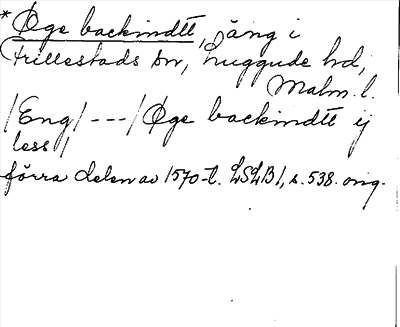 *Øge backindtt, äng i
Frillestads sn, Luggude hd,
Malm. l.
/Eng/ --- / Øge backindtt ij
less /
förra delen av 1570-t. LSLB 1, s. 538. orig.